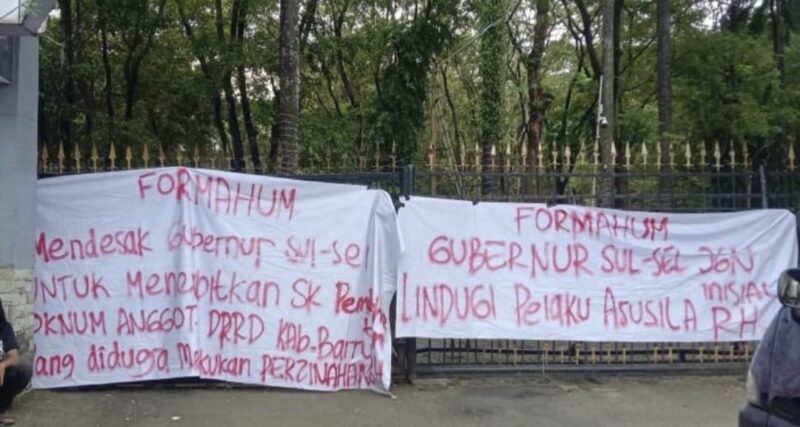 FORMAHUM
Mendesak Gubernur SUl-sel
UNTUK Menerbitkan SK
OKNUM ANGGOT. DPRD KAB. Barru
yang diduga Melakukan PERZINAHAN
FORMAHUM
GUBERNUR SUL-SEL JGN
LINDUGI Pelaku Asusila
INISIAL
RH